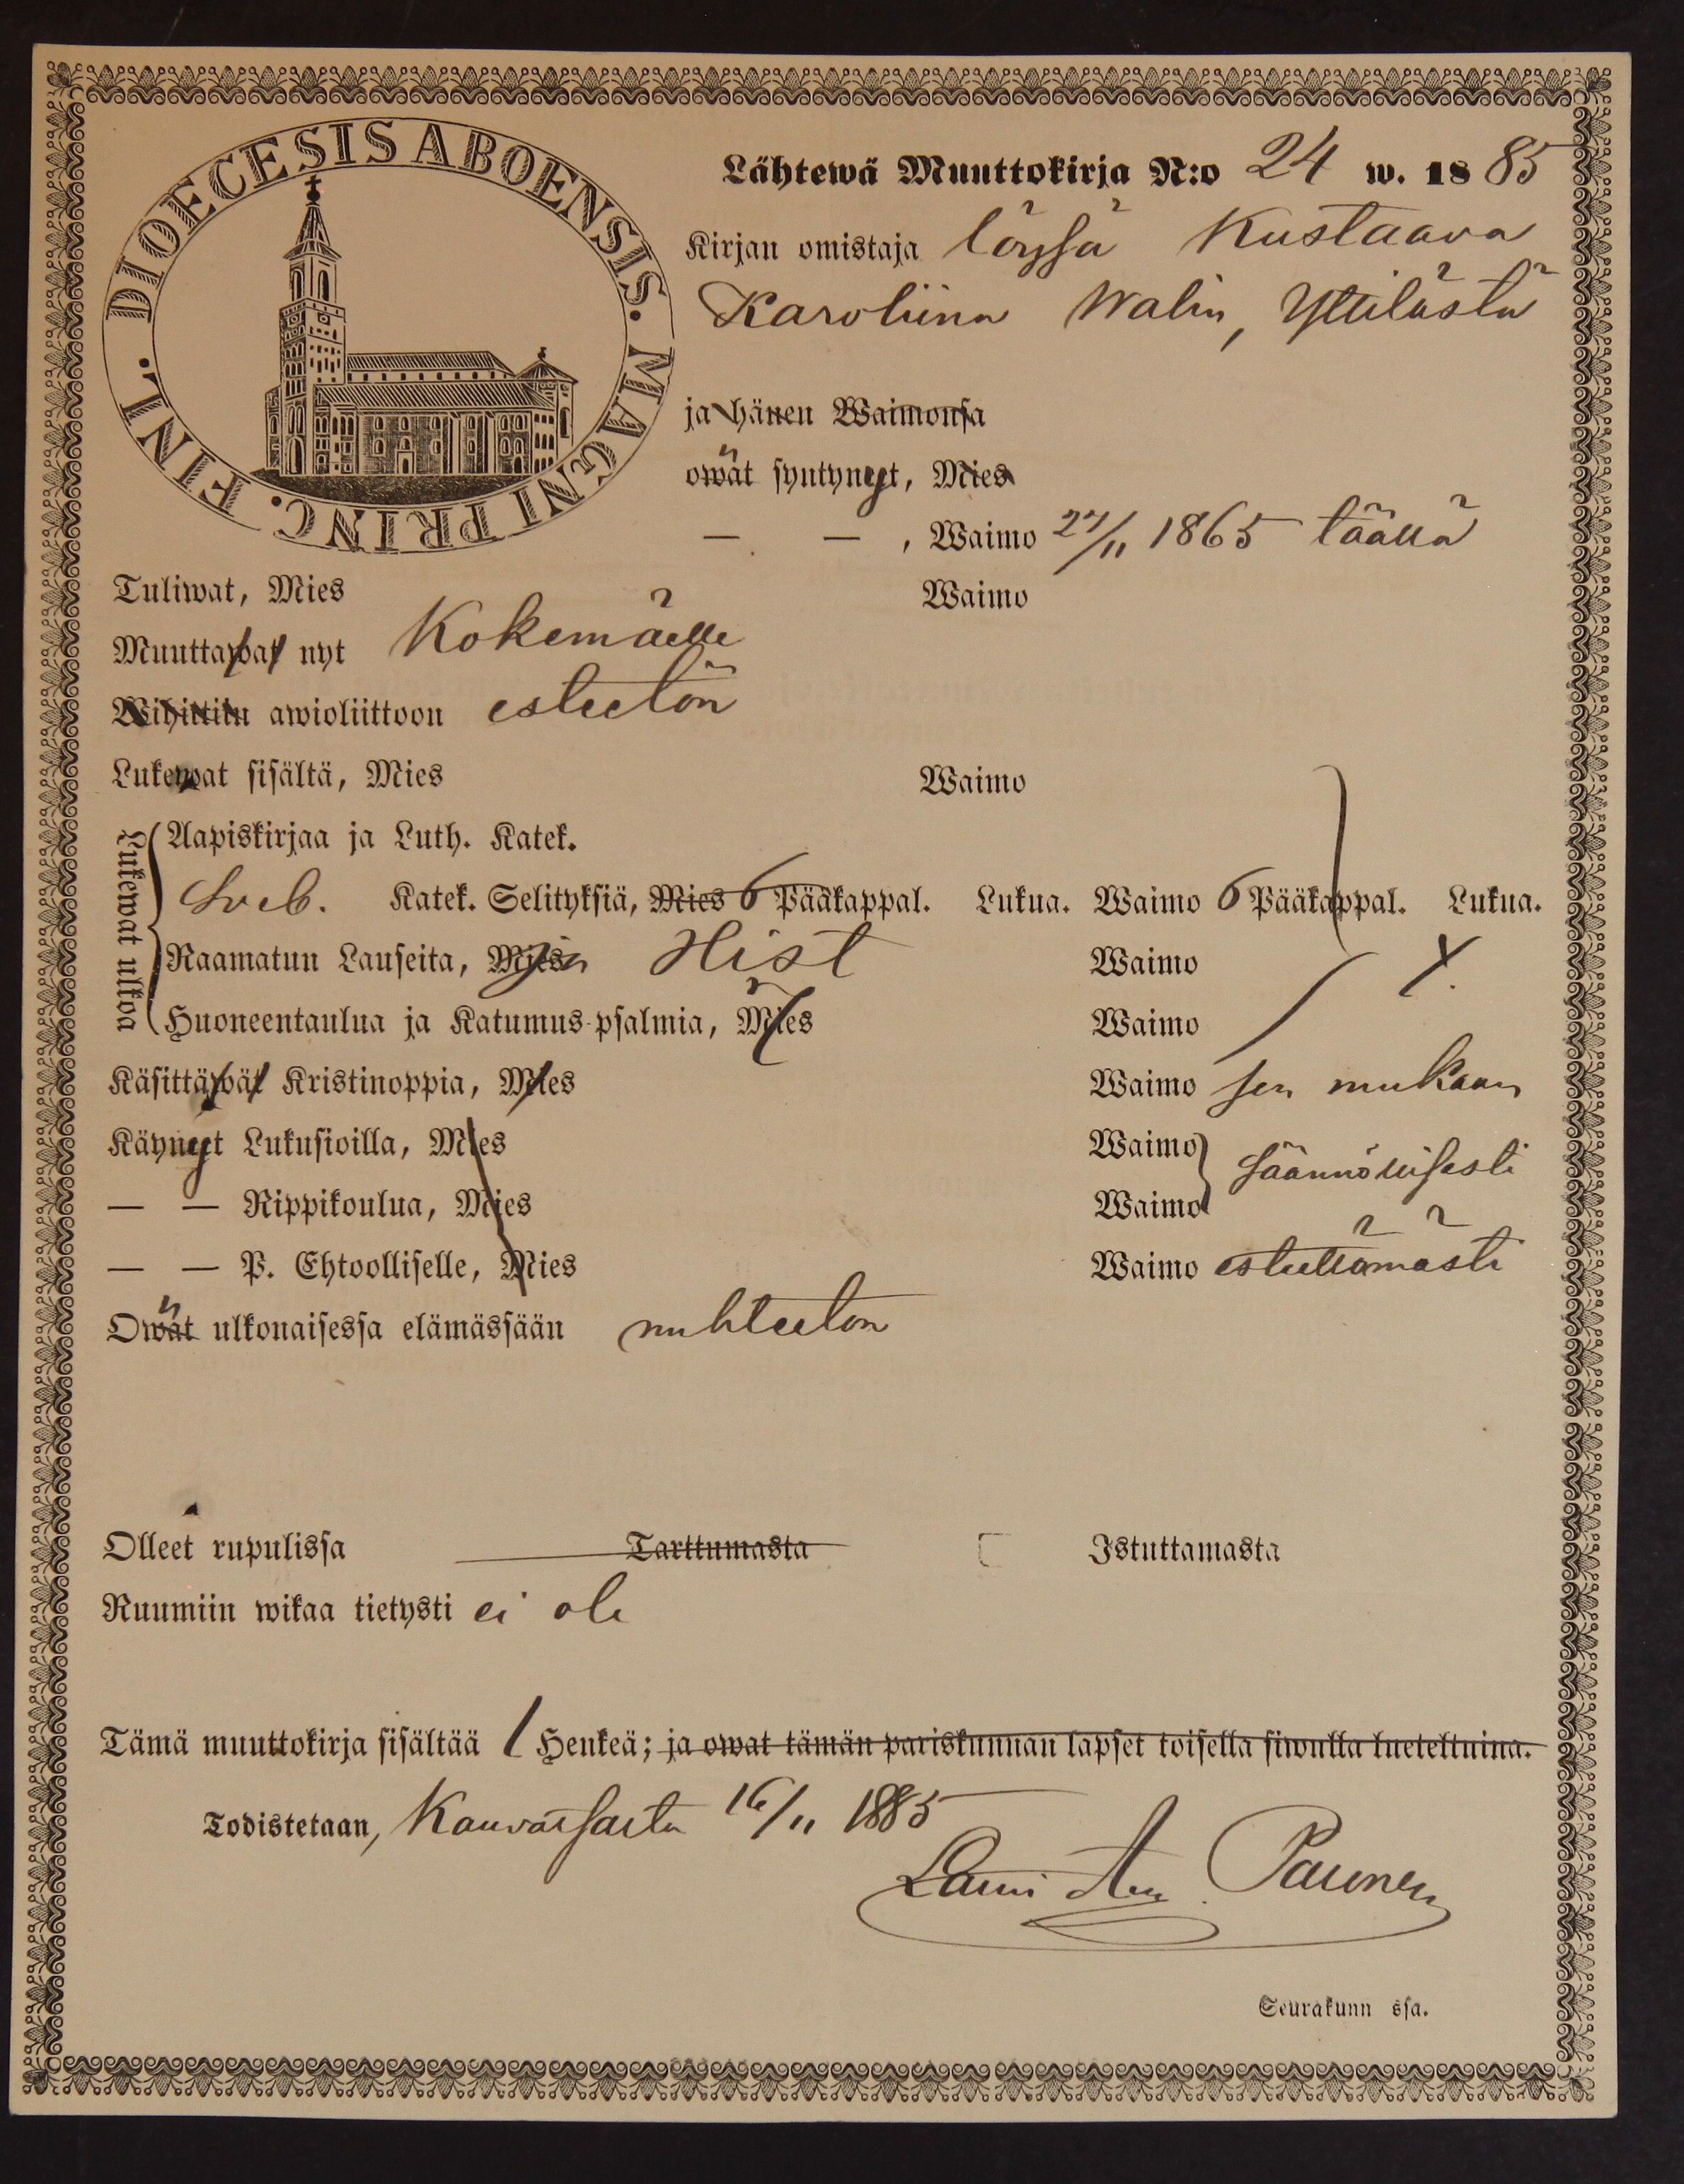 DIOECESIS ABOENSIS. MAGNI PRINC. FINL.
Lähtewä Muuttokirja N:o 24 w. 1885
Kirjan omistaja löysä Kustaava
Karoliina Walin, Yttilästä
ja hänen Waimonsa
owat syntyneet, Mies
— — , Waimo 27/11 1865 täällä
Tuliwat, Mies Waimo
Muuttawat nyt Kokemäelle
Wihittiin awioliittoon esteetön
Lukewat sisältä, Mies Waimo
Lukewat ulkoa
Aapiskirjaa ja Luth. Katek.
Sveb. Katek. Selityksiä, Mies 6 Pääkappal. Lukua. Waimo 6 Pääkappal. Lukua.
Raamatun Lauseita, Mies Hist Waimo
Huoneentaulua ja Katumus-psalmia, Mies Waimo
Käsittäwät Kristinoppia, Mies Waimo sen mukaan
Käyneet Lukusioilla, Mies Waimo säännöllisesti
— — Rippikoulua, Mies Waimo
— — P. Ehtoolliselle, Mies Waimo esteettömästi
Owat ulkonaisessa elämässään nuhteeton
Olleet rupulissa Tarttumasta Istuttamasta
Ruumiin wikaa tietysti ei ole
Tämä muuttokirja sisältää 1 Henkeä; ja owat tämän pariskunnan lapset toisella siwulla lueteltuina.
Todistetaan, Kauvatsasta 16/11 1885
Lauri Paunen
Seurakunn ssa.